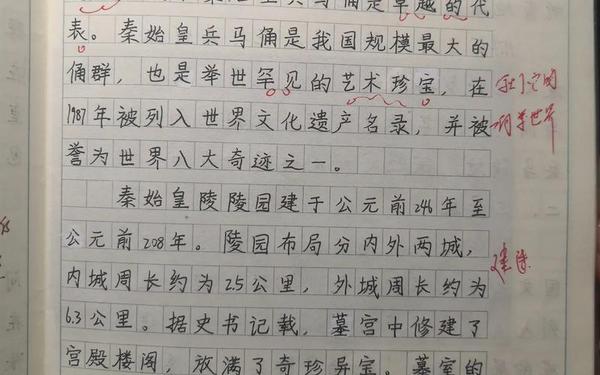 兵马俑是卓越的代
表。秦始皇兵马俑是我国规模最大的
俑群，也是举世罕见的艺术珍宝，在
1987年被列入世界文化遗产名录，并被
誉为世界八大奇迹之一。
秦始皇陵陵园建于公元前246年至
公元前208年。陵园布局分内外两城，
内城周长约为2.5公里，外城周长约为
6.3公里。据史书记载，墓宫中修建了
宫殿楼阁，放满了奇珍异宝。墓室的